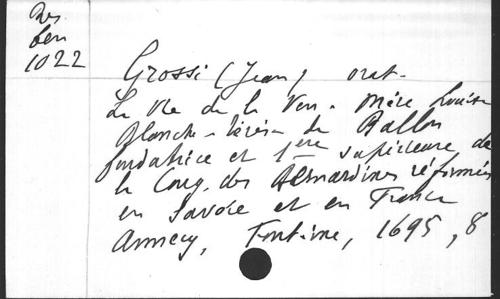 Res
ben
1022
Grossi (Jean) orat.
La Vie de la Ven. Mère Louise
Blanche-Térèse de Ballon
fondatrice et 1ère supérieure de
la Cong. des Bernardines réformées
en Savoie et en France
Annecy, Fontaine, 1695, 8